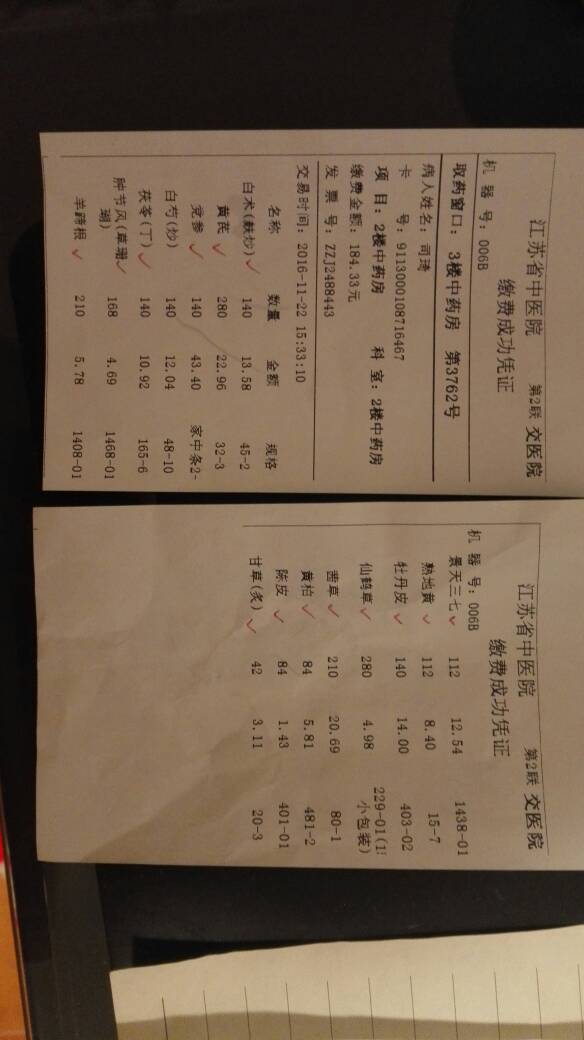 江苏省中医院
缴费成功凭证
第2联 交医院
机 器 号: 006B
取药窗口: 3楼中药房 第3762号
病人姓名: 司琦
卡 号: 9113000108716467
项 目: 2楼中药房 科 室: 2楼中药房
缴费金额: 184.33元
发 票 号: ZZJ2488443
交易时间: 2016-11-22 15:33:10
名称 数量 金额 规格
白术(麸炒) 140 13.58 45-2
黄芪 280 22.96 32-3
党参 140 43.40 家中条2-
白芍(炒) 140 12.04 48-10
茯苓(丁) 140 10.92 165-6
肿节风(草珊 168 4.69 1468-01
瑚)
羊蹄根 210 5.78 1408-01
江苏省中医院
缴费成功凭证
第2联 交医院
机 器 号: 006B
景天三七 112 12.54 1438-01
熟地黄 112 8.40 15-7
牡丹皮 140 14.00 403-02
仙鹤草 280 4.98 229-01(1
小包装)
茜草 210 20.69 80-1
黄柏 84 5.81 481-2
陈皮 84 1.43 401-01
甘草(炙) 42 3.11 20-3